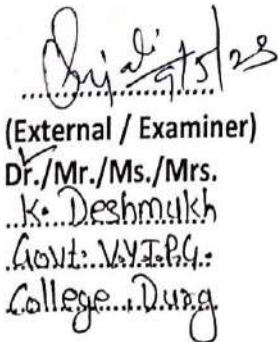 9/5/23
(External / Examiner)
Dr./Mr./Ms./Mrs.
K. Deshmukh
Govt. V.Y.T.P.G.
College, Durg